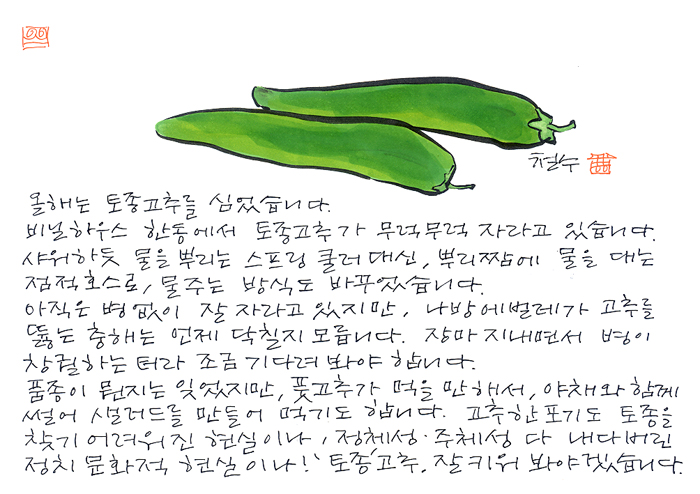 철수
올해는 토종고추를 심었습니다.
비닐하우스 한동에서 토종고추가 무럭무럭 자라고 있습니다.
샤워하듯 물을 뿌리는 스프링 쿨러 대신, 뿌리짬에 물을 대는
점적호스로, 물주는 방식도 바꾸었습니다.
아직은 병없이 잘 자라고 있지만, 나방애벌레가 고추를
뚫는 충해는 언제 닥칠지 모릅니다. 장마 지내면서 병이
창궐하는 터라 조금 기다려 봐야 합니다.
품종이 뭔지는 잊었지만, 풋고추가 먹을 만해서, 야채와 함께
썰어 샐러드를 만들어 먹기도 합니다. 고추 한포기도 토종을
찾기 어려워진 현실이나, 정체성·주체성 다 내다버린
정치 문화적 현실이나! '토종'고추. 잘키워 봐야겠습니다.